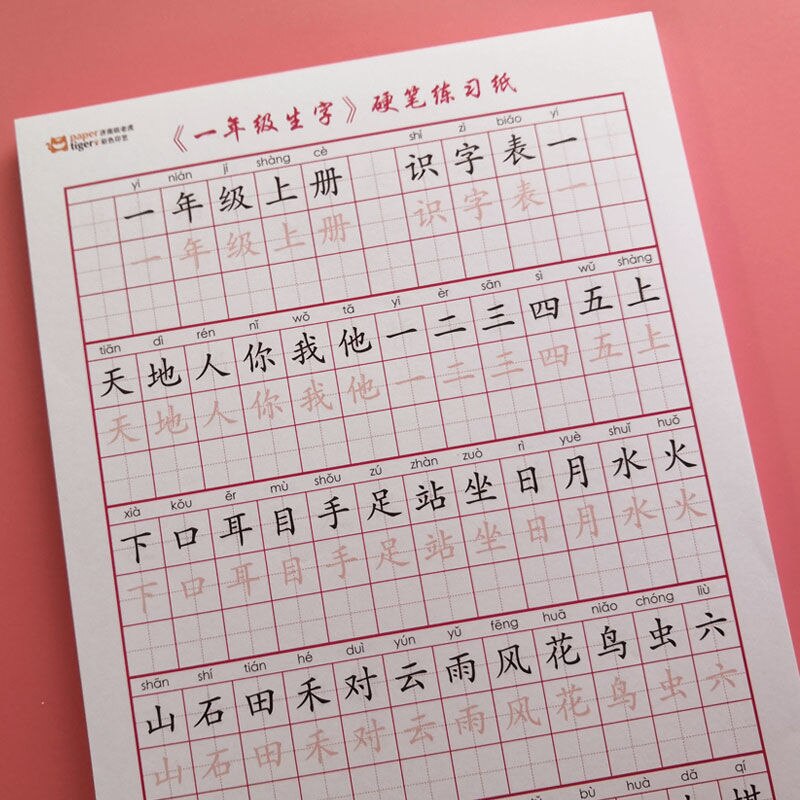 paper tiger 济南纸老虎 彩色印艺
《一年级生字》硬笔练习纸
yī nián jí shàng cè shí zì biǎo yī
一年级上册 识字表一
一年级上册 识字表一
tiān dì rén nǐ wǒ tā yī èr sān sì wǔ shàng
天地人你我他一二三四五上
天地人你我他一二三四五上
xià kǒu ěr mù shǒu zú zhàn zuò rì yuè shuǐ huǒ
下口耳目手足站坐日月水火
下口耳目手足站坐日月水火
shān shí tián hé duì yún yǔ fēng huā niǎo chóng liù
山石田禾对云雨风花鸟虫六
山石田禾对云雨风花鸟虫六
bù huà dǎ qí